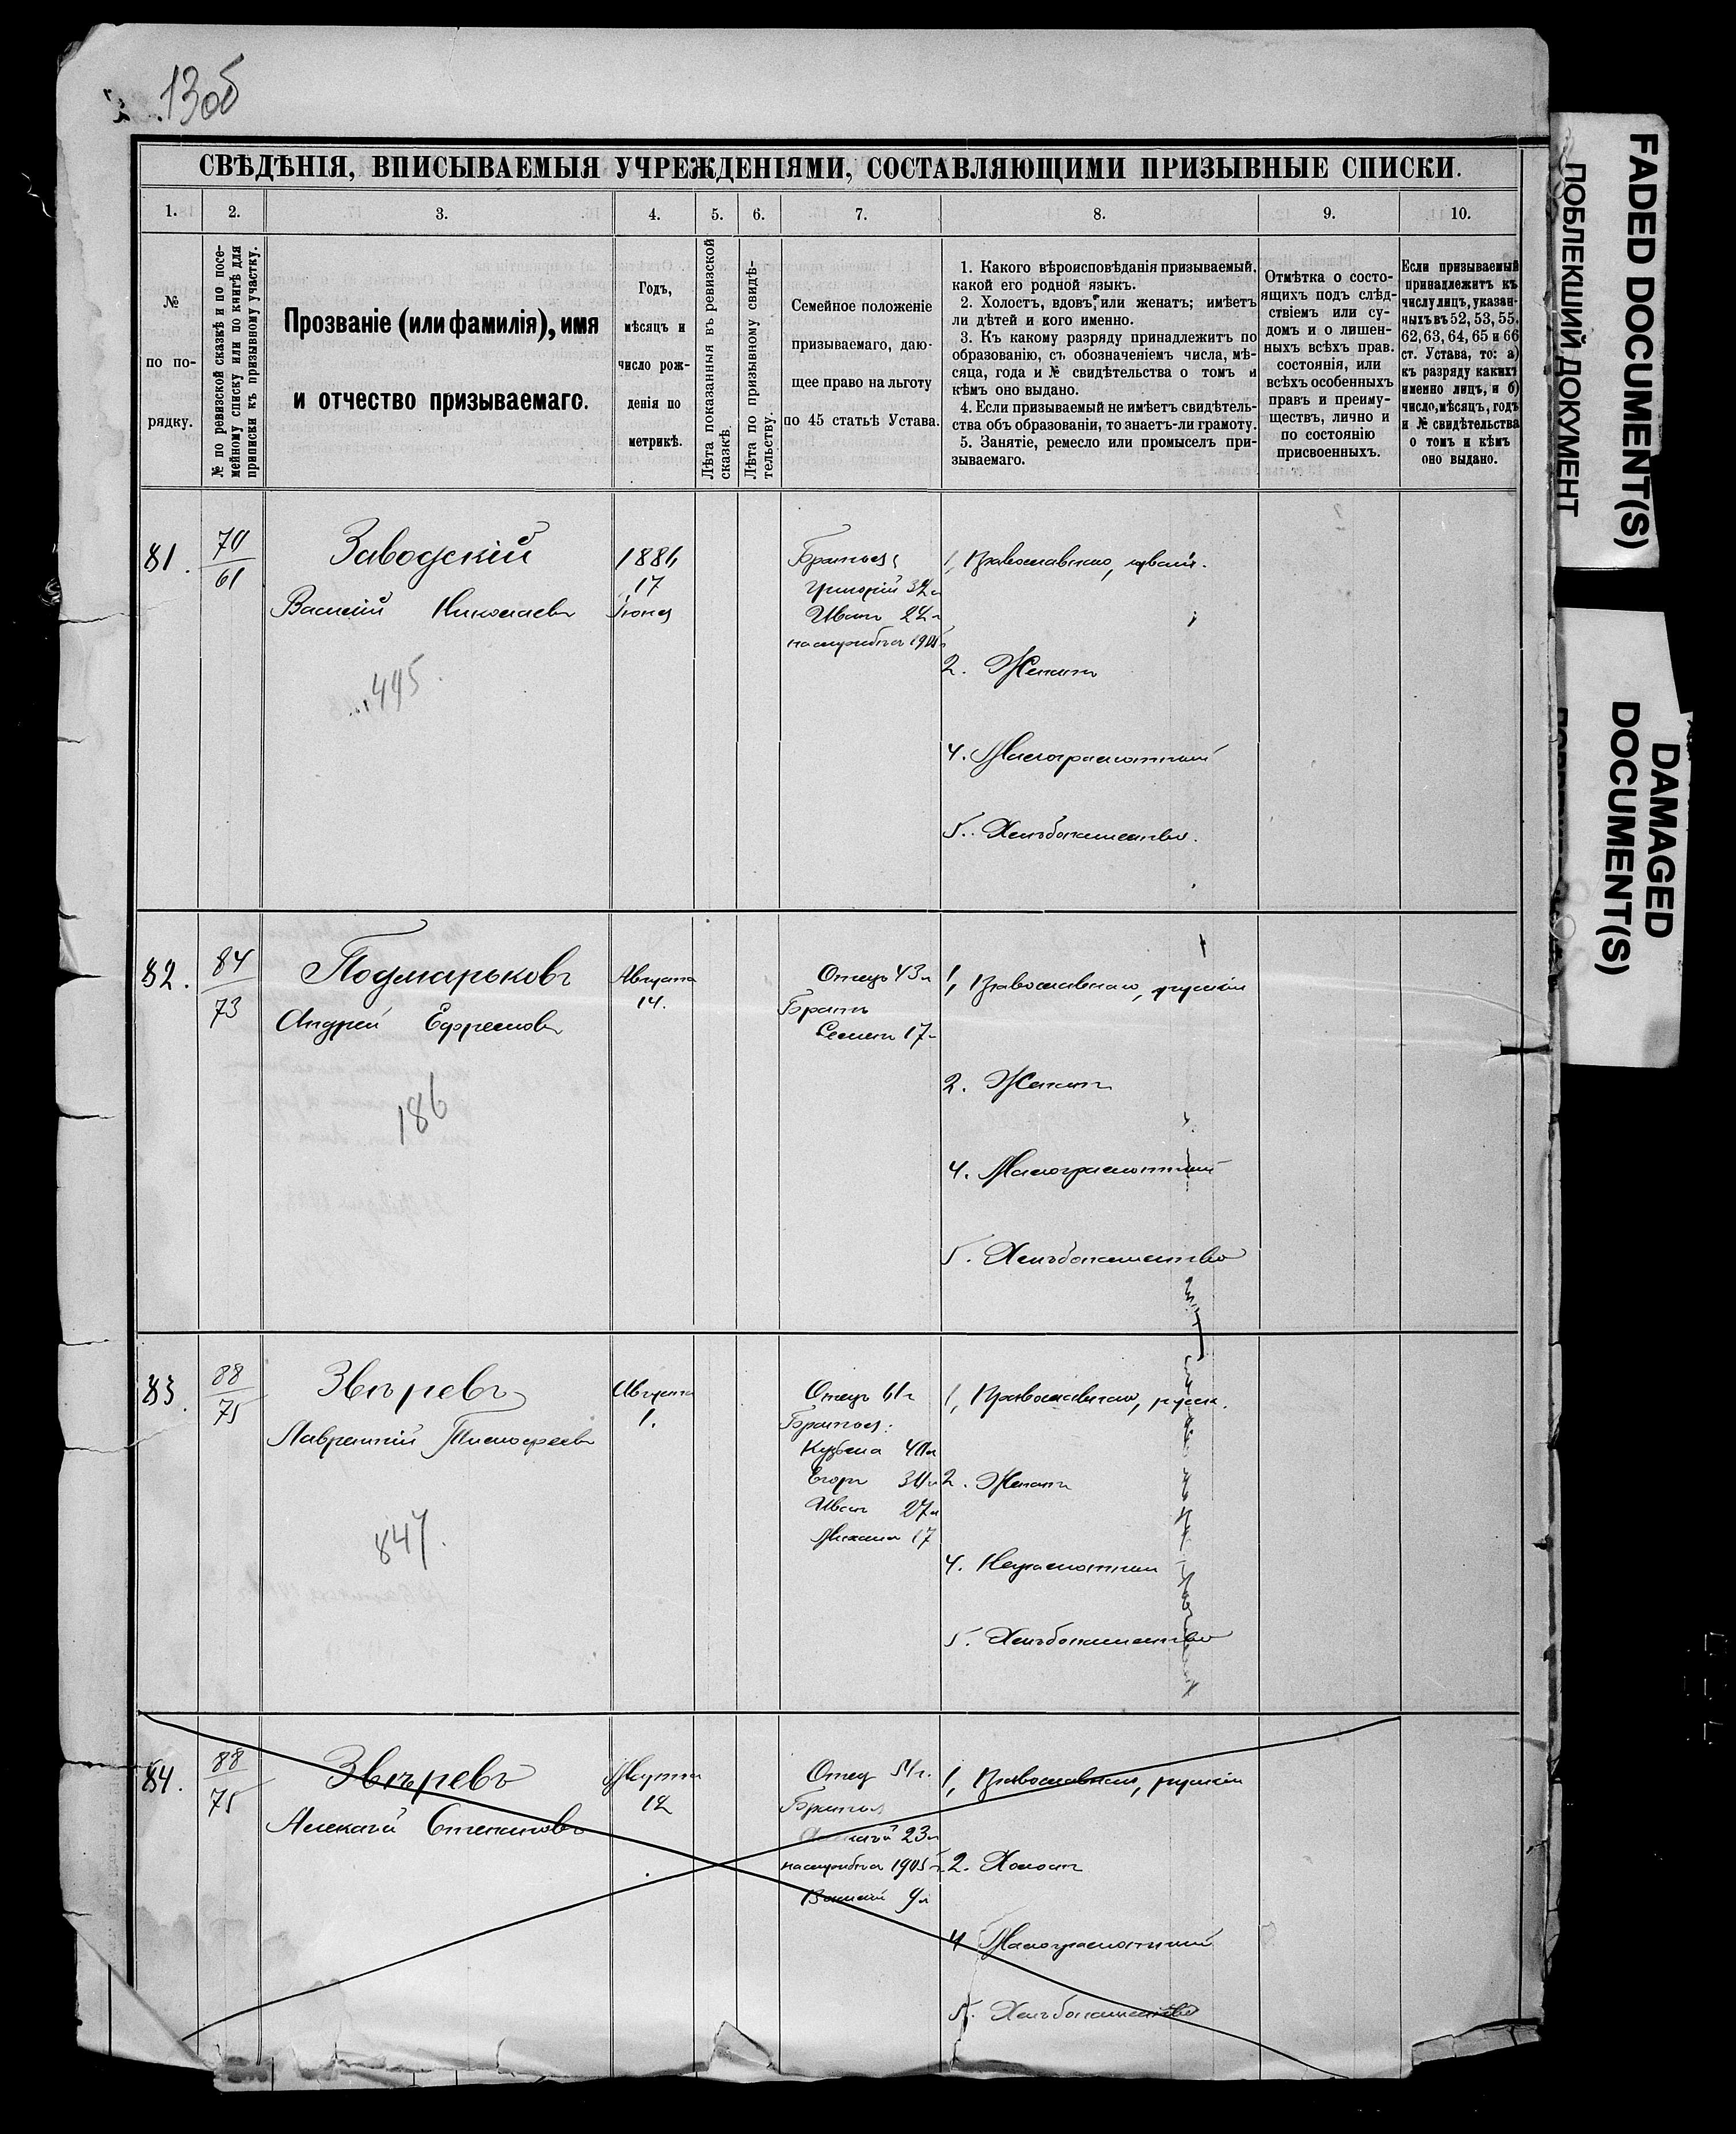 130б
СВѢДѢНІЯ, ВПИСЫВАЕМЫЯ УЧРЕЖДЕНІЯМИ, СОСТАВЛЯЮЩИМИ ПРИЗЫВНЫЕ СПИСКИ.
1. 2. 3. 4. 5. 6. 7. 8. 9. 10.
№
по по-
рядку.
№ по ревизской сказкѣ и по посе-
мейному списку или по книгѣ для
приписки къ призывному участку.
Прозваніе (или фамилія), имя
и отчество призываемаго.
Годъ,
мѣсяцъ и
число рож-
денія по
метрикѣ.
Лѣта показанныя въ ревизской
сказкѣ.
Лѣта по призывному свидѣ-
тельству.
Семейное положеніе
призываемаго, даю-
щее право на льготу
по 45 статьѣ Устава.
1. Какого вѣроисповѣданія призываемый,
какой его родной языкъ.
2. Холостъ, вдовъ или женатъ; имѣетъ
ли дѣтей и кого именно.
3. Къ какому разряду принадлежитъ по
образованію, съ обозначеніемъ числа, мѣ-
сяца, года и № свидѣтельства о томъ и
кѣмъ оно выдано.
4. Если призываемый не имѣетъ свидѣтель-
ства объ образованіи, то знаетъ-ли грамоту.
5. Занятіе, ремесло или промыселъ при-
зываемаго.
Отмѣтка о состо-
ящихъ подъ слѣд-
ствіемъ или су-
домъ и о лишен-
ныхъ всѣхъ прав.
состоянія, или
всѣхъ особенныхъ
правъ и преиму-
ществъ, лично и
по состоянію
присвоенныхъ.
Если призываемый
принадлежитъ къ
числу лицъ, указан-
ныхъ въ 52, 53, 55,
62, 63, 64, 65 и 66
ст. Устава, то: а)
къ разряду какихъ
именно лицъ, и б)
число, мѣсяцъ, годъ
и № свидѣтельства
о томъ и кѣмъ
оно выдано.
81.
70
61
Заводскій
Василій Николаевъ
445.
1886
17
Іюня
Братья:
Григорій 32 л
Иванъ 24 л
на службѣ съ 1905 г
1, Православнаго,
2. Женатъ
4. Малограмотный
5. Хлѣбопашество.
82.
84
73
Подмарьковъ
Андрей Ефремовъ
186
Августа
14.
Отецъ 43 л
Братъ
Семенъ 17 л
1, Православнаго, русскій
2. Женатъ
4. Малограмотный
5. Хлѣбопашество
83.
88
75
Звѣревъ
Лаврентій Тимофеевъ
847.
Августа
1.
Отецъ 61 г
Братья:
Кузьма 40 л
Егоръ 30 л
Иванъ 27 л
Михаилъ 17
1, Православнаго, русск.
2. Женатъ
4. Неграмотный
5. Хлѣбопашество
84.
88
75
Звѣревъ
Алексѣй Степановъ
Марта
12
Отецъ 54 г.
Братья
23 л
на службѣ съ 1905 г.
Василій 9 л
1, Православнаго, русскій
2. Холостъ
4 Малограмотный
5. Хлѣбопашество
FADED DOCUMENT(S)
ПОБЛЕКШИЙ ДОКУМЕНТ
DAMAGED
DOCUMENT(S)